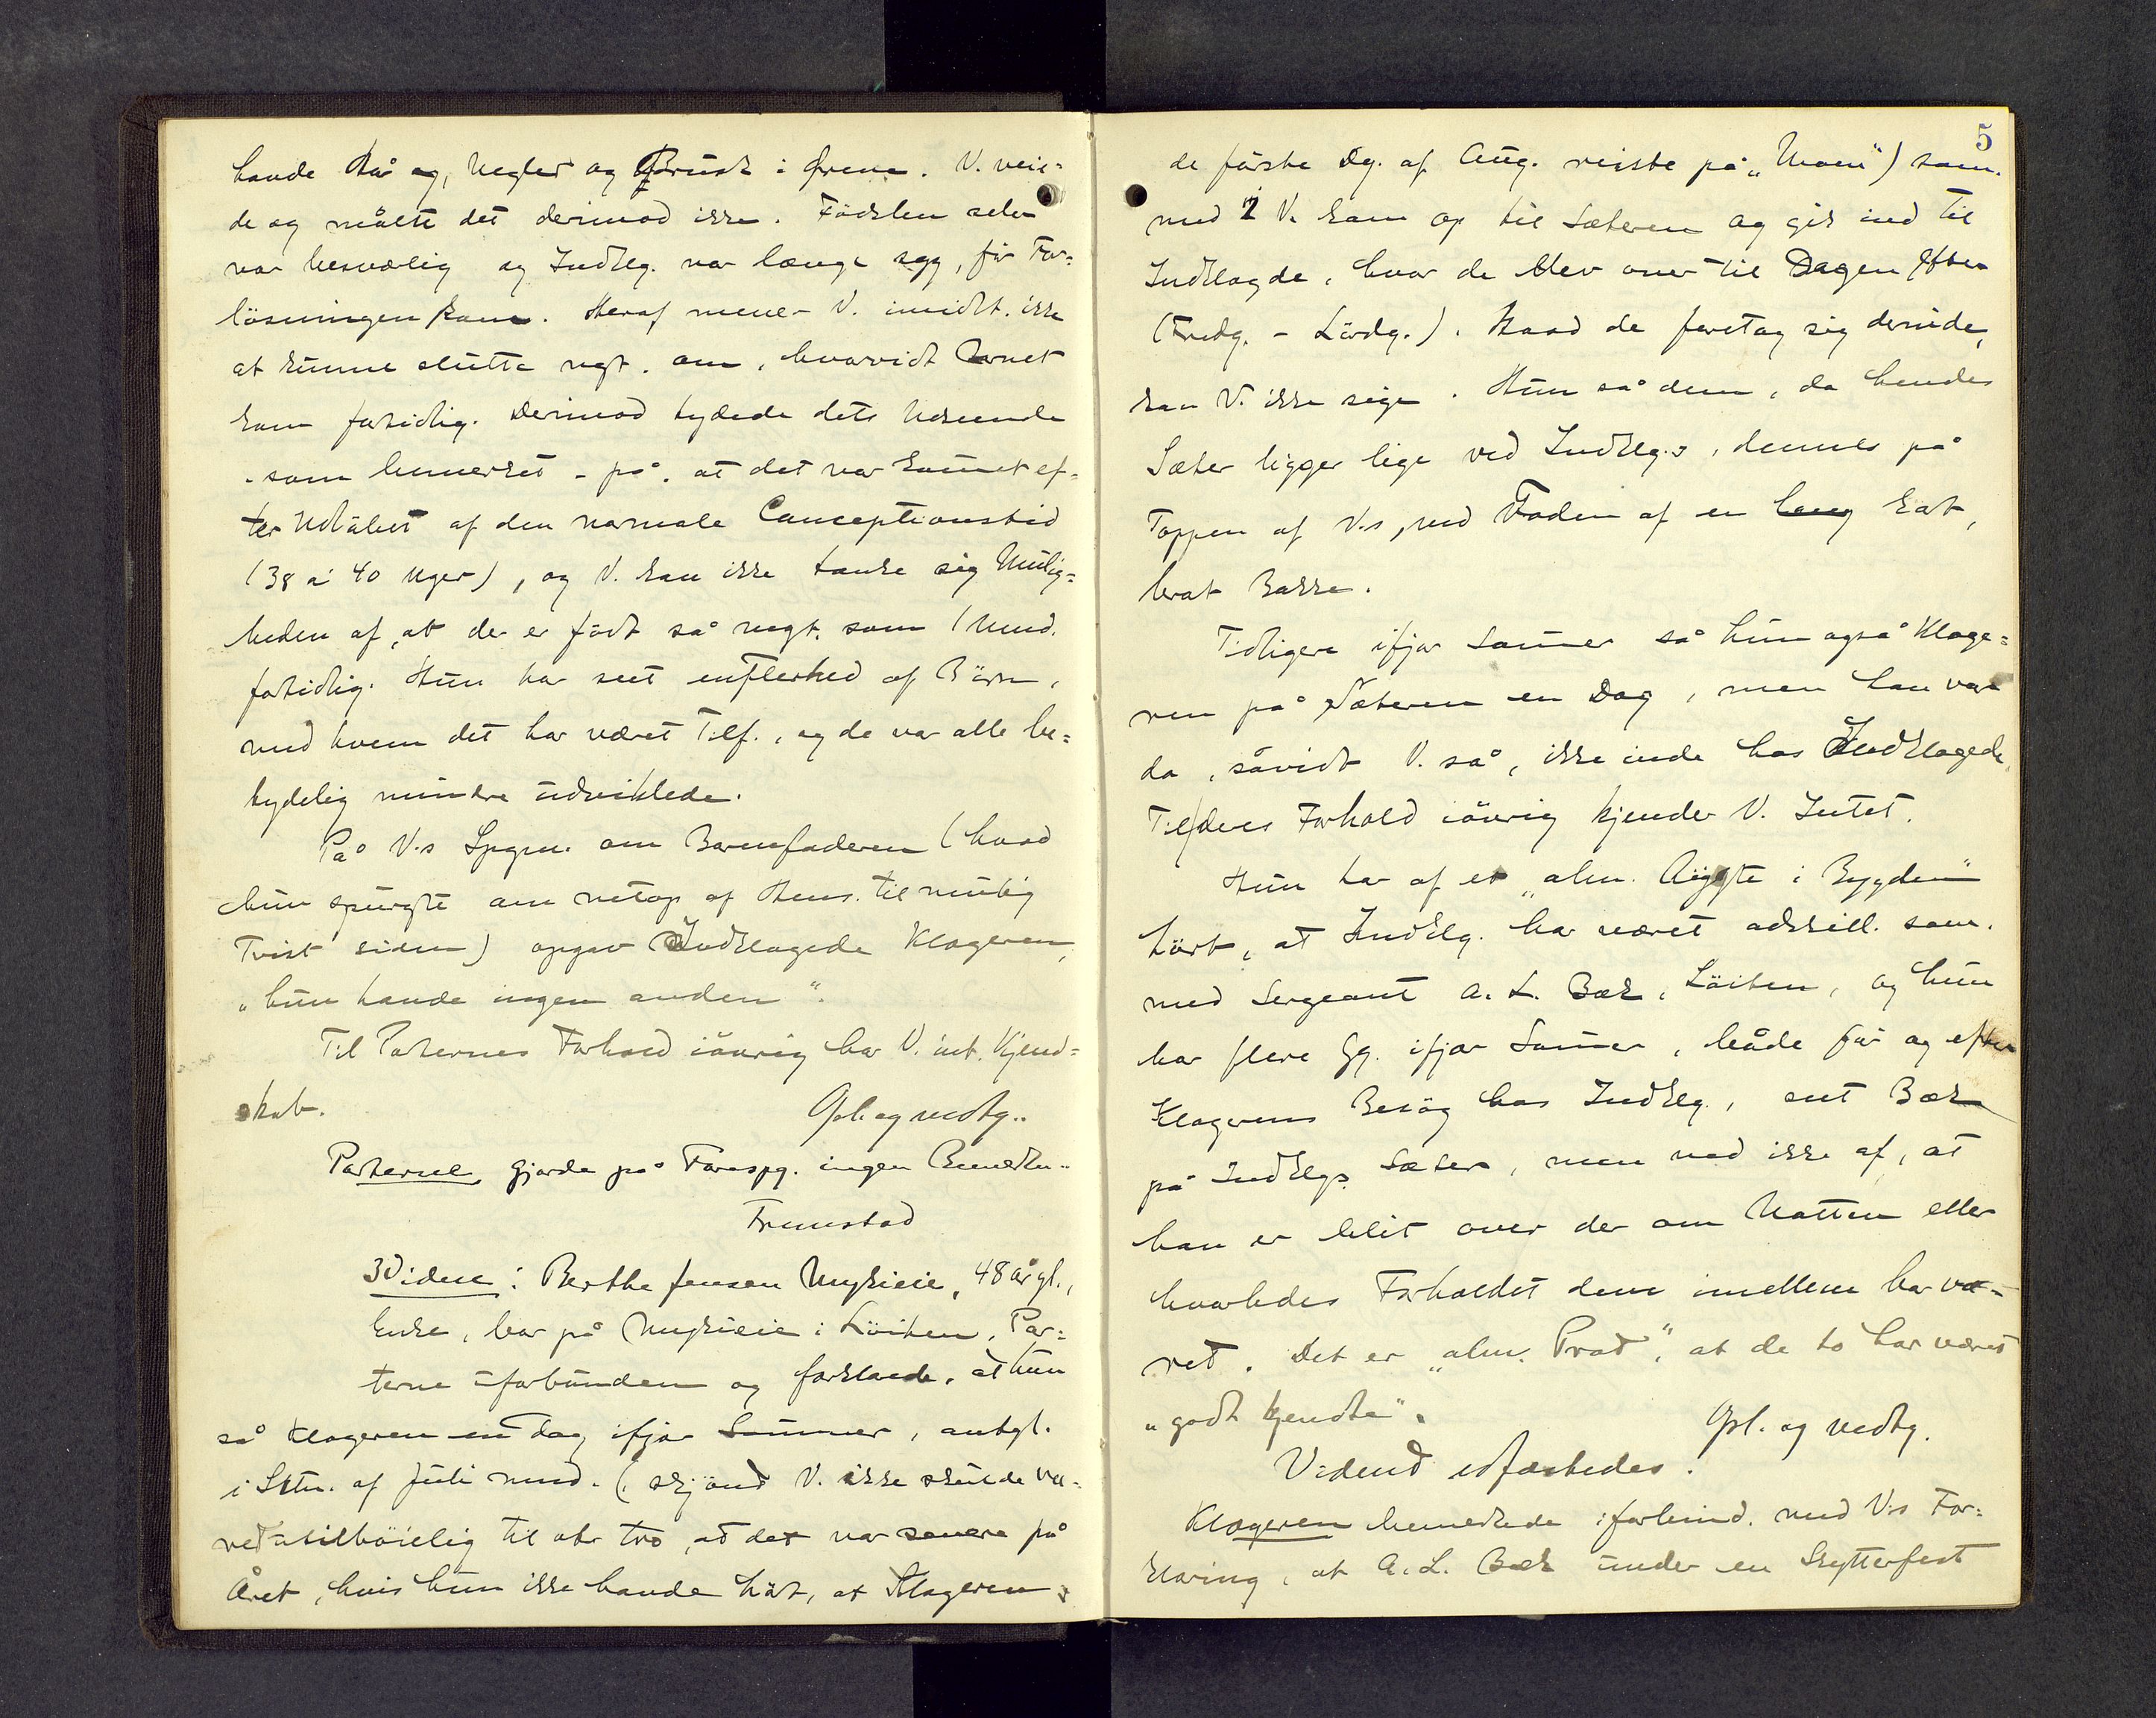 havde Hår og, Negler og Brusk i Ørene. V. vei=
de og målte det derimod ikke. Fødslen selv
var besværlig og Indklg. var længe syg, før For=
løsningen kom. Heraf mener V. imidlt. ikke
at kunne slutte ngt. om, hvorvidt Barnet
kom fortidlig. Derimod tydede dets Udseende
- som bemerket - på, at det var kommet ef=
ter Udløbet af den normale Conceptionstid
(38 à 40 Uger), og V. kan ikke tænke sig Mulig=
heden af, at der er født så ngt. som 1 Mnd.
fortidlig. Hun har seet en Flerhed af Børn,
med hvem det har været Tilf., og de var alle be=
tydelig mindre udviklede.
På V.s Spgsm. om Barnefaderen (hvad
hun spurgte om netop af Hens. til mulig
Tvist siden) opgav Indklagede Klageren,
"hun havde ingen anden".
Til Parternes Forhold iøvrig har V. int. Kjend=
skab.
Opl. og vedtg..
Parterne gjorde på Forespg. ingen Bemerkn..
Fremstod
3 Vidne: Berthe Jensen Myhreie, 48 år gl.,
Enke, bor på Myhreie i Löiten, Par=
terne uforbunden og forklarede, at hun
så Klageren en Dag ifjor Sommer, antgl.
i Slutn. af Juli Mnd. (skjønt V. ikke skulde væ=
ret utilbøielig til at tro, at det var senere på
Året, hvis hun ikke havde hørt, at Klageren
5
de første Dg. af Aug. reiste på "Moen") sam.
med 1 V. kom op til Sæteren og gik ind til
Indklagede, hvor de blev over til Dagen efter
(Fredg. - Lördg.). Hvad de foretog sig derinde,
kan V. ikke sige. Hun så dem, da hendes
Sæter ligger lige ved Indklg.s, dennes på
Toppen af V.s, ved Foden af en lang kort,
brat Bakke.
Tidligere ifjor Sommer så hun også Klage=
ren på Sæteren en Dag, men han var
da, såvidt V. så, ikke inde hos Indklagede.
Til deres Forhold iøvrig kjender V. Intet.
Hun har af et "alm. Rygte i Bygden"
hört, at Indklg. har været adskill. sam.
med Sergeant A. L. Bæk, Löiten, og hun
har flere Gg. ifjor Sommer, både før og efter
Klagerens Besøg hos Indklg., set Bæk
på Indklgs Sæter, men ved ikke af, at
han er blit over der om Natten eller
hvorledes Forholdet dem imellem har væ=
ret. Det er "alm. Prat", at de to har været
"godt kjendte".
Opl. og vedtg.
Vidnet edfæstedes.
Klageren bemerkede i forbind. med V.s For=
klaring, at A. L. Bæk under en Skytterfest